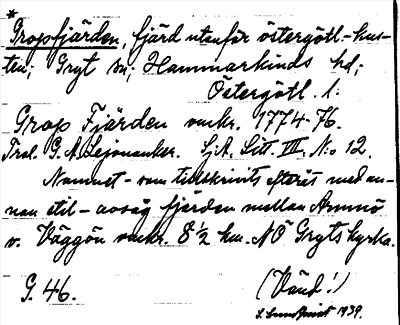 *
Gropfjärden, fjärd utanför östergötl-kus-
ten; Gryt sn; Hammarkinds hd;
Östergötl. l.
Grop Fjärden omkr. 1774-76.
G. A. Lejonanker. Sj.A. Litt VIII. No 12.
Namnet - som tillskrivits efteråt med an-
nan stil - avsåg fjärden mellan Armnö
o. Väggön omkr. 8 1/2 km. NÖ Gryts kyrka.
G. 46.
(Vänd!)
S. Lundqvist 1939.